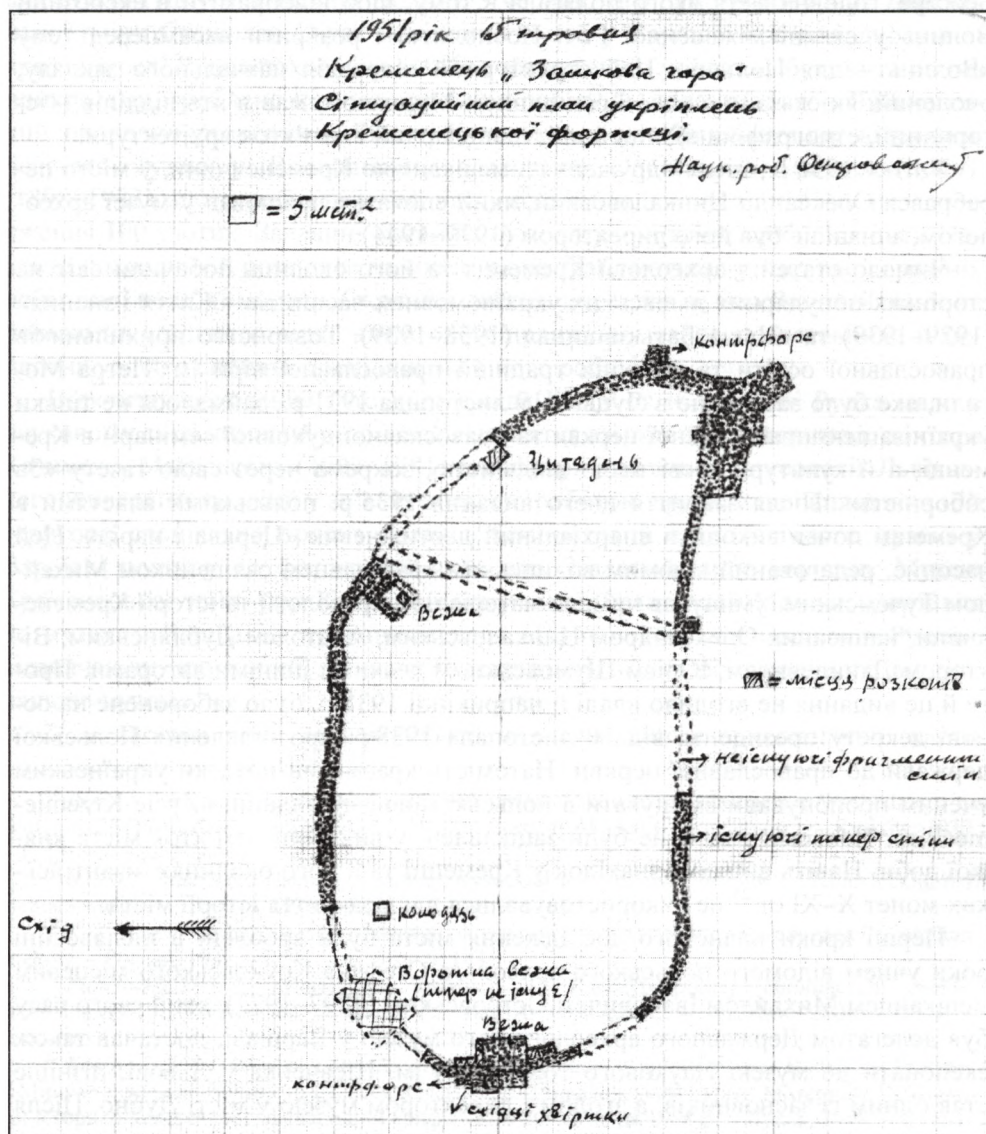 1951 рік 15 травня
Кременець, Замкова гора
Ситуаційний план укріплень
Кременецької фортеці.
Наук. роб. Островський
= 5 мет.²
контрфорс
Цитадель
Вежа
= місця розкопів
Неіснуючі фрагменти
стін
Існуючі тепер стіни
Схід
колодязь
Воротна вежа
/тепер не існує/
Вежа
контрфорс
східці хвіртки